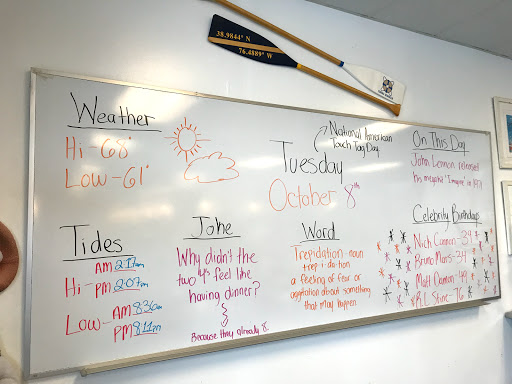 38.9844° N
76.4889° W
Weather
Hi - 68°
Low - 61°
National American
Touch Tag Day
Tuesday
October 8th
On This Day
John Lennon released
his megahit "Imagine" in 1971
Tides
AM 2:17am
Hi - PM 2:07pm
AM 8:30am
Low - PM 8:11pm
Joke
Why didn't the
two 4's feel like
having dinner?
Because they already 8.
Word
Trepidation - noun
trep·i·da·tion
a feeling of fear or
agitation about something
that may happen
Celebrity Birthdays
Nick Cannon - 39
Bruno Mars - 34
Matt Damon - 49
R.L. Stine - 76